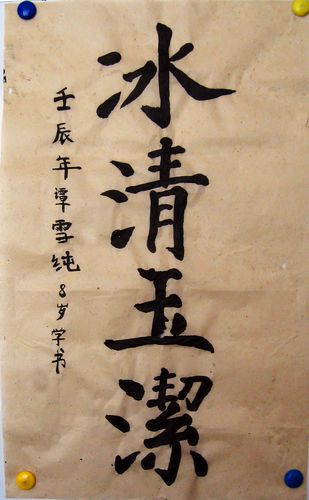 冰清玉潔
壬辰年谭雪纯8岁学书